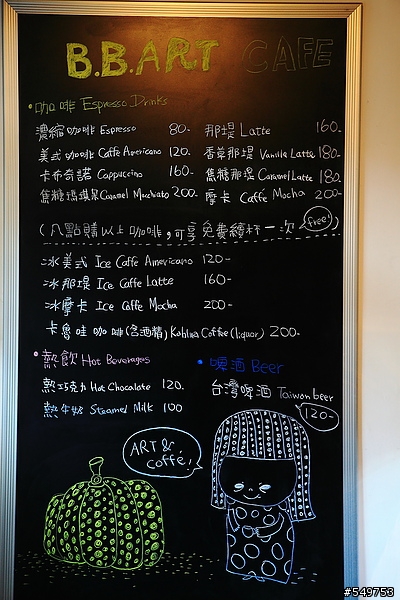 B.B.ART CAFE
咖啡 Espresso Drinks
濃縮咖啡 Espresso 80-
那堤 Latte 160-
美式咖啡 Caffe Americano 120-
香草那堤 Vanilla Latte 180-
卡布奇諾 Cappuccino 160-
焦糖那堤 Caramel Latte 180-
焦糖瑪琪朵 Caramel Macchiato 200-
摩卡 Caffe Mocha 200-
(凡點購以上咖啡,可享免費續杯一次 free!)
冰美式 Ice Caffe Americano 120-
冰那堤 Ice Caffe Latte 160-
冰摩卡 Ice Caffe Mocha 200-
卡魯哇咖啡(含酒精) Kahlua Coffee (liquor) 200-
熱飲 Hot Beverages
熱巧克力 Hot Chocolate 120.
熱牛奶 Steamed Milk 100
啤酒 Beer
台灣啤酒 Taiwan beer
120-
ART &
coffé!
#549753